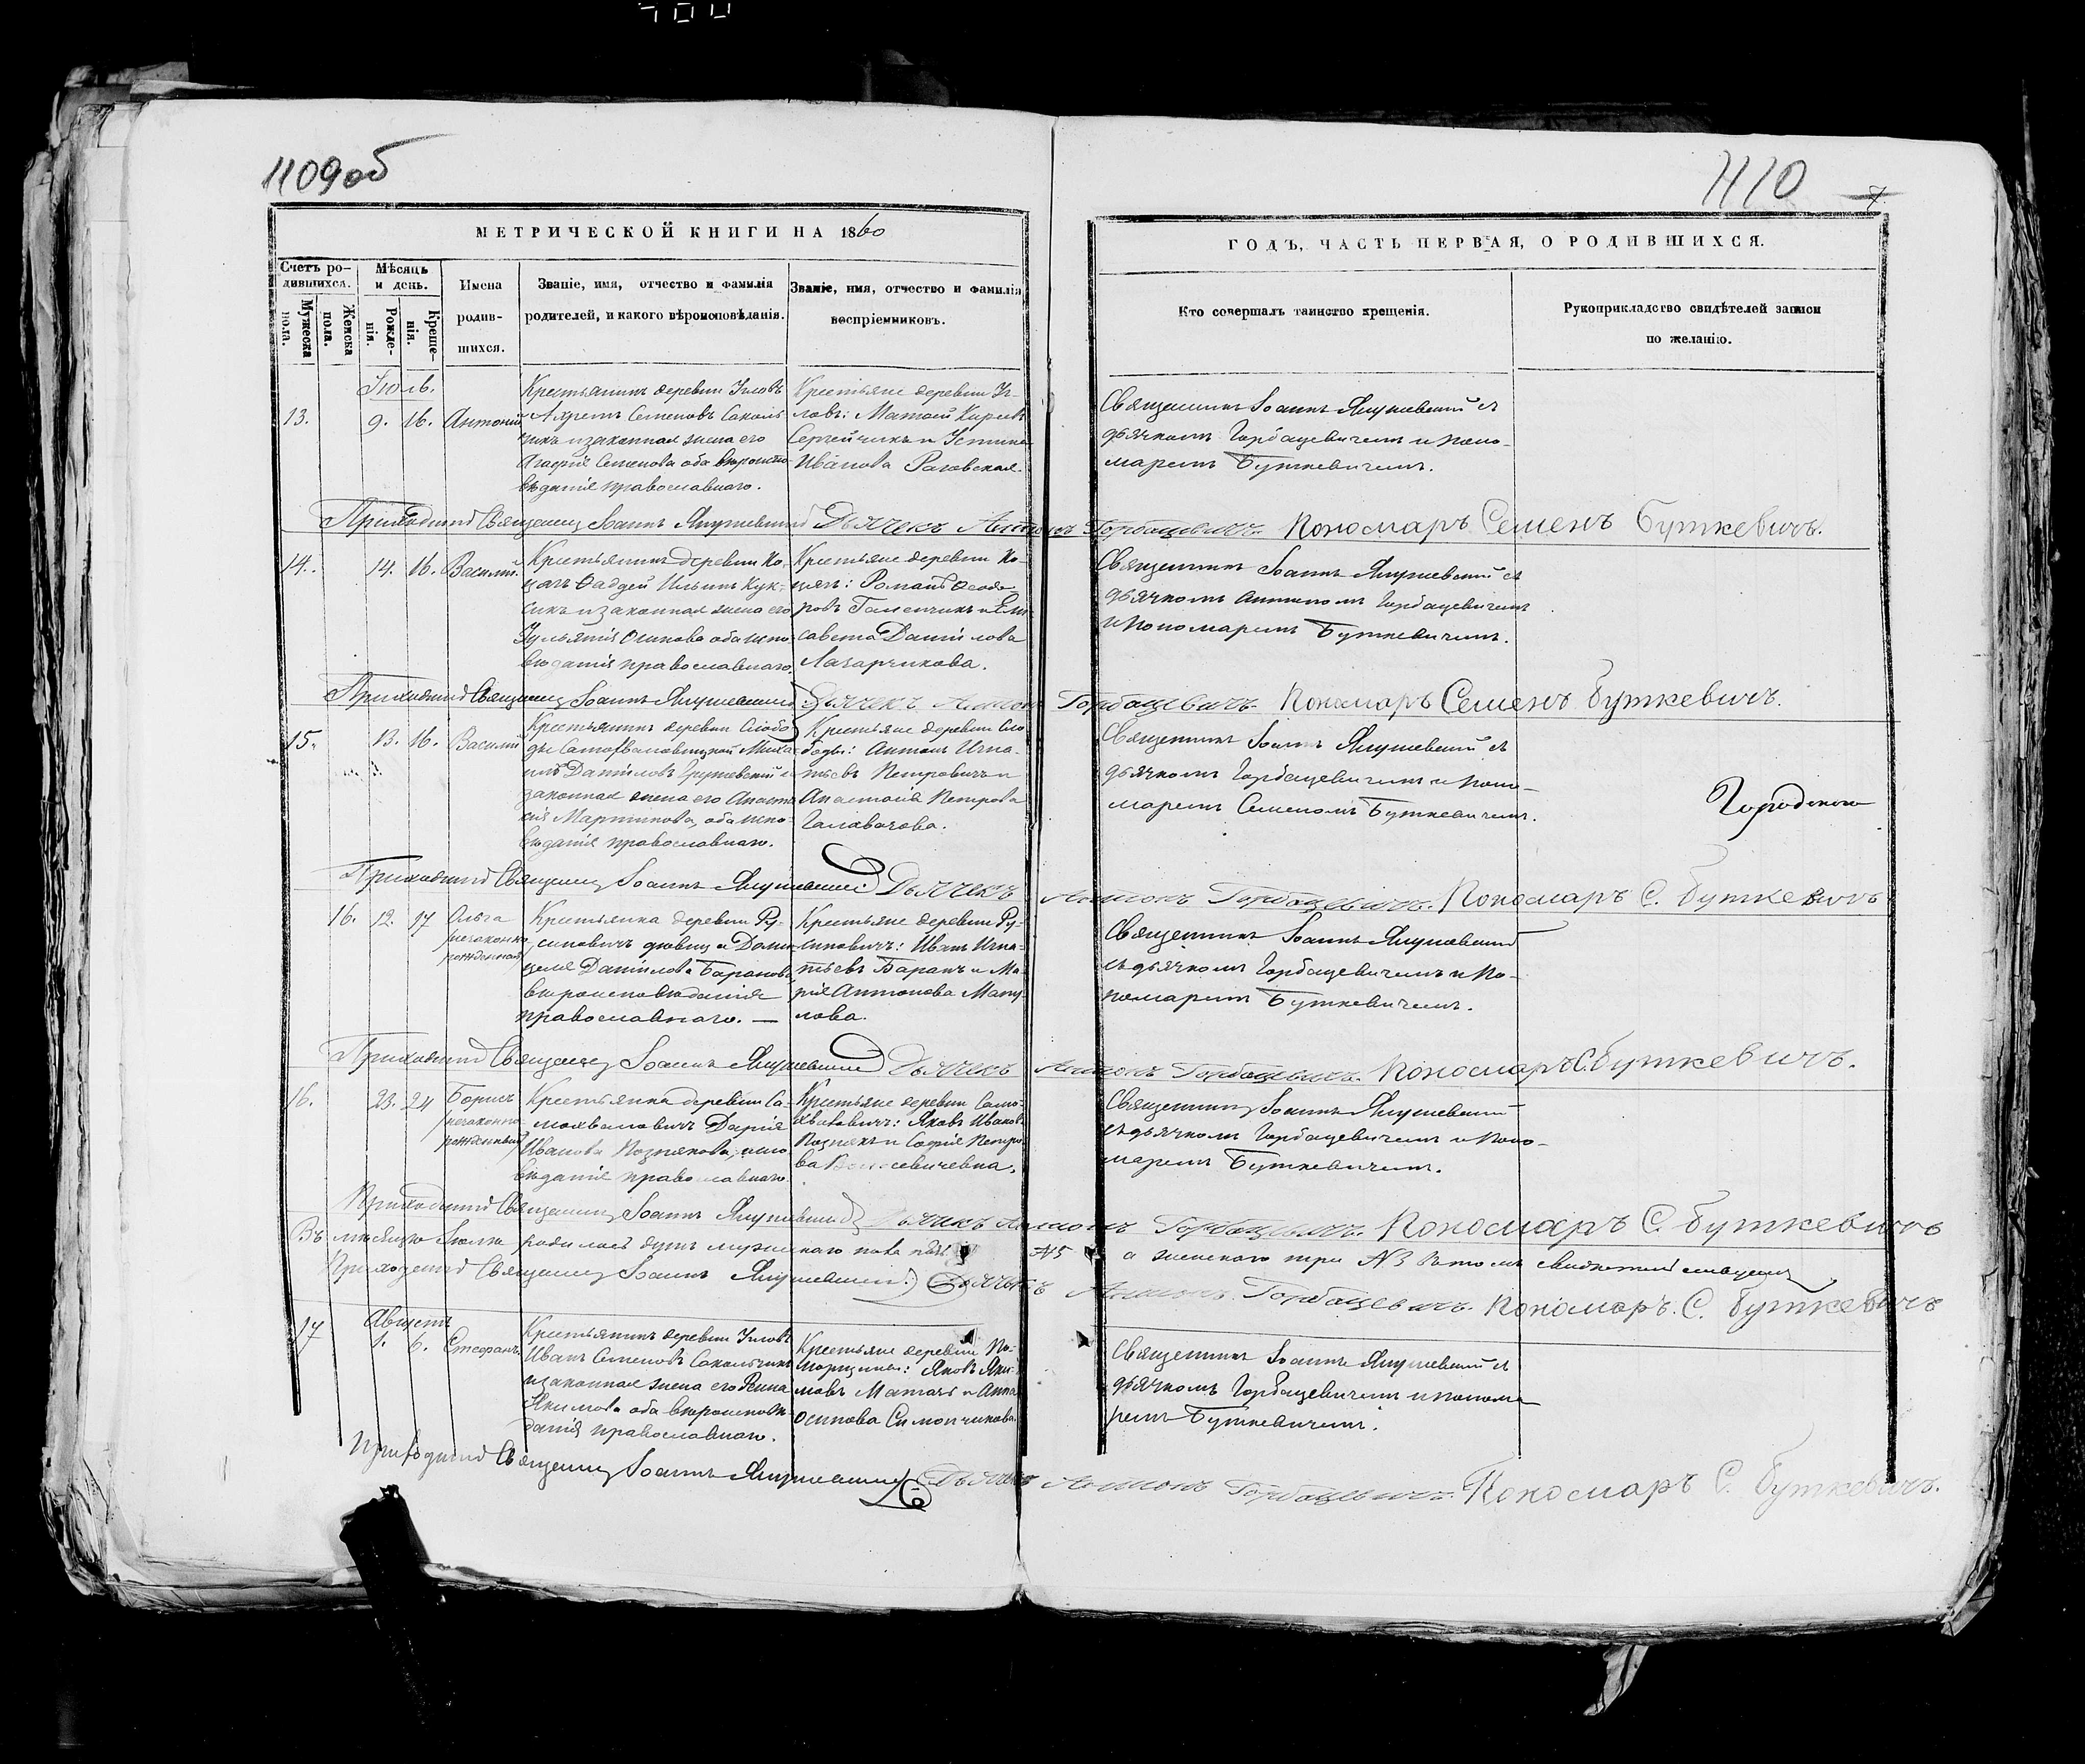 1109 об
1110
7
МЕТРИЧЕСКОЙ КНИГИ НА 1860
ГОДЪ, ЧАСТЬ ПЕРВАЯ, О РОДИВШИХСЯ.
Счетъ ро-
дившихся.
Мужеска
пола.
Женска
пола.
Мѣсяцъ
и день.
Рожде-
нія.
Креще-
нія.
Имена
родив-
шихся.
Званіе, имя, отчество и фамилія
родителей, и какого вѣроисповѣданія.
Званіе, имя, отчество и фамилія
воспріемниковъ.
Кто совершалъ таинство крещенія.
Рукоприкладство свидѣтелей записи
по желанію.
Іюль.
13. 9. 16. Антоній
Крестьянинъ деревни
Семеновъ Соколь-
чикъ и законная жена его
Агафія Семенова оба вѣроиспо-
вѣданія православнаго.
Крестьяне деревни
Матѳей
Сергейчикъ и Устина
Иванова Раговская.
Священникъ Іоаннъ Янушевскій съ
дьячкомъ Горбацевичемъ и поно-
маремъ Буткевичемъ.
Приходскій Священникъ Іоаннъ Янушевскій Дьячекъ Антонъ Горбацевичъ. Пономаръ Семенъ Буткевичъ.
14. 14. 16. Василій.
Крестьянинъ деревни Ко-
Ѳаддей Ильинъ Кук-
сикъ и законная жена его
Ульянія Осипова оба испо-
вѣданія православнаго.
Крестьяне деревни Ко-
Романъ Ѳеодо-
ровъ Галенчикъ и Ели-
савета Данілова
Лазарчикова.
Священникъ Іоаннъ Янушевскій съ
дьячкомъ Антономъ Горбацевичемъ
и пономаремъ Буткевичемъ.
Приходскій Священникъ Іоаннъ Янушевскій Дьячекъ Антонъ Горбацевичъ. Пономаръ Семенъ Буткевичъ.
15. 13. 16. Василій
Крестьянинъ деревни Слобо-
ды Самохваловицкой Миха-
илъ Даніловъ Грушевскій и
законная жена его Анаста-
сія Мартинова, оба испо-
вѣданія православнаго.
Крестьяне деревни Сло-
боды: Антонъ Игна-
тьевъ Петровичъ и
Анастасія Петрова
Галавачова.
Священникъ Іоаннъ Янушевскій съ
дьячкомъ Горбацевичемъ и поно-
маремъ Семеномъ Буткевичемъ.
Приходскій Священникъ Іоаннъ Янушевскій Дьячекъ Антонъ Горбацевичъ. Пономаръ С. Буткевичъ
16. 12. 17 Ольга
незаконно
рожденная
Крестьянка деревни Ру-
синовичъ девица Доми-
целя Данілова Баранова,
вѣроисповѣданія
православнаго. —
Крестьяне деревни Ру-
синовичъ: Иванъ Игна-
тьевъ Баранъ и Ма-
рія Антонова
Священникъ Іоаннъ Янушевскій
съ дьячкомъ Горбацевичемъ и по-
номаремъ Буткевичемъ.
Приходскій Священникъ Іоаннъ Янушевскій Дьячекъ Антонъ Горбацевичъ. Пономаръ С. Буткевичъ.
16. 23. 24 Борисъ
незаконно
рожденный
Крестьянка деревни Са-
мохваловичъ Дарія
Иванова Познякова, испо-
вѣданія православнаго.
Крестьяне деревни Само-
хваловичъ: Яковъ Ивановъ
Познякъ и Софія Петро-
ва
Священникъ Іоаннъ Янушевскій
съ дьячкомъ Горбацевичемъ и поно-
маремъ Буткевичемъ.
Приходскій Священникъ Іоаннъ Янушевскій Дьячекъ Антонъ Горбацевичъ. Пономаръ С. Буткевичъ
Въ мѣсяцѣ Іюлѣ родилось душъ мужескаго пола пять №5 а женскаго три №3 въ томъ
Приходскій Священникъ Іоаннъ Янушевскій. Дьячекъ Антонъ Горбацевичъ. Пономаръ. С. Буткевичъ
Августъ
17 1. 6. Стефанъ.
Крестьянинъ деревни
Иванъ Семеновъ Сокольчикъ
и законная жена его
Якимова оба вѣроисповѣ-
данія православнаго.
Крестьяне деревни
Яковъ Яки-
мовъ и Анна
Осипова Симончикова.
Священникъ Іоаннъ Янушевскій съ
дьячкомъ Горбацевичемъ и понома-
ремъ Буткевичемъ.
Приходскій Священникъ Іоаннъ Янушевскій Дьячекъ Антонъ Горбацевичъ. Пономаръ С. Буткевичъ.